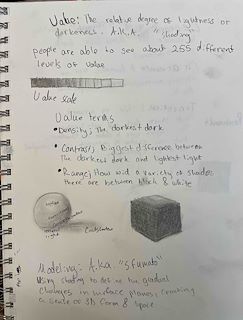 Value: The relative degree of lightness or
darkness. A.K.A. "shading"
people are able to see about 255 different
levels of value
Value scale
Value terms
• Density: The darkest dark
• Contrast: Biggest difference between
The darkest dark and lightest light
• Range: How wid a variety of shades
there are between black & white
Cast shadow
Modeling: A.K.a "sfumato"
Using shading to define the gradual
changes in surface planes, creating
a sense of 3D form & space